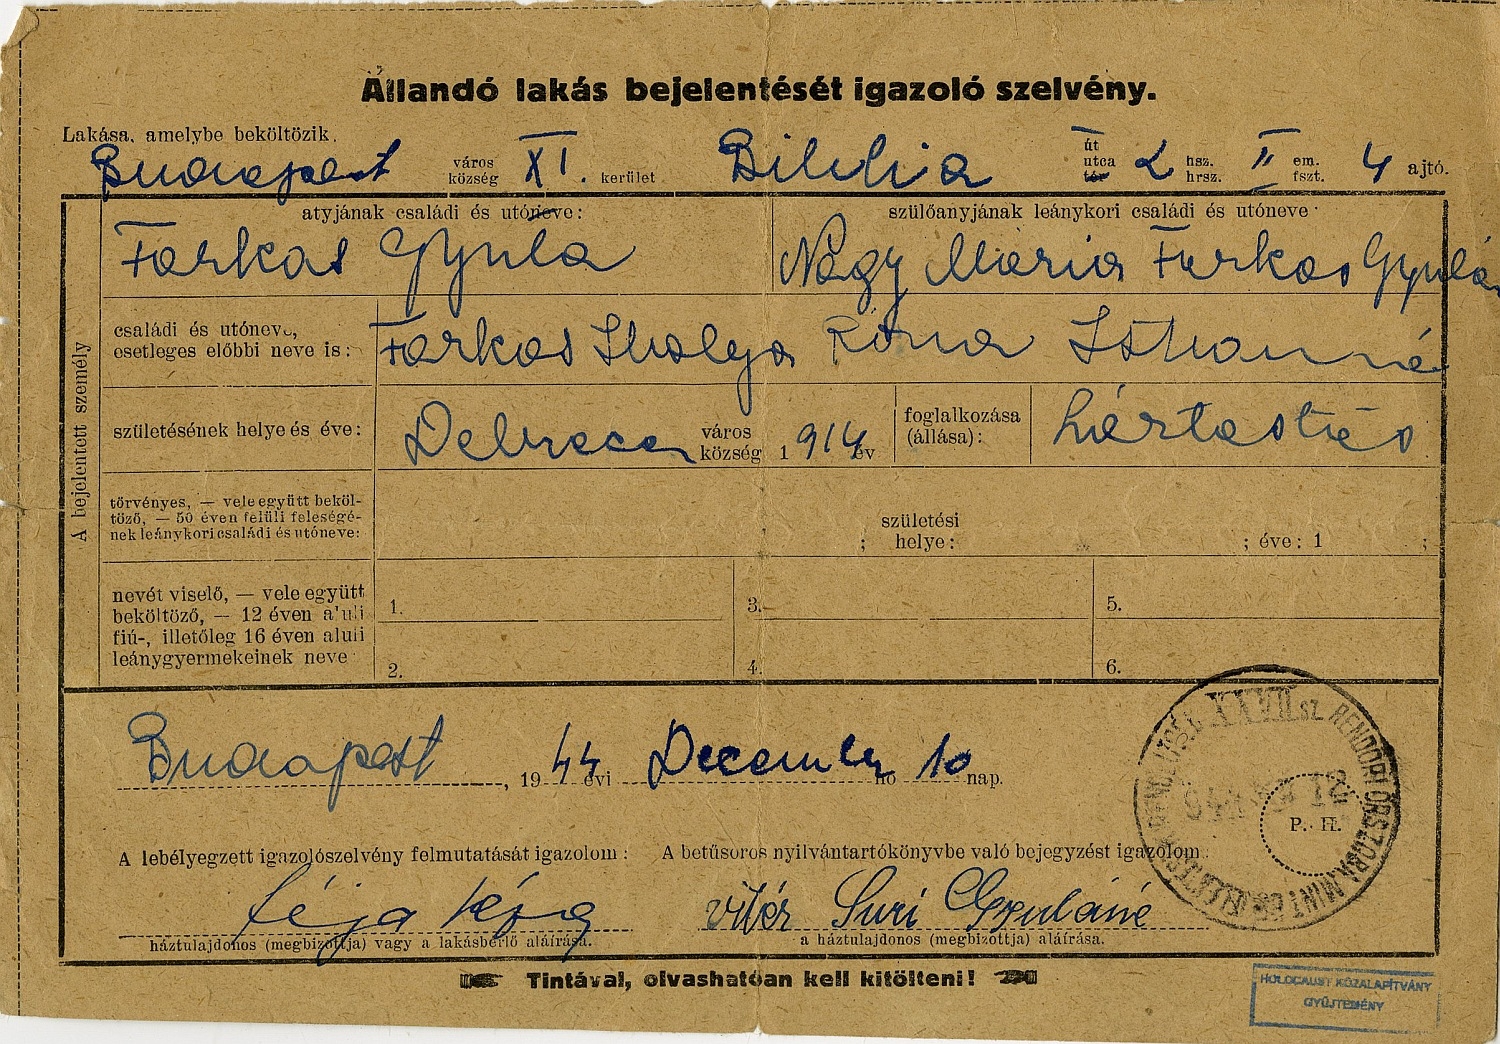 Állandó lakás bejelentését igazoló szelvény.
Lakása, amelybe beköltözik.
Budapest város község XI. kerület út utca tér 2 hsz. hrsz. II em. fszt. 4 ajtó.
A bejelentett személy
atyjának családi és utóneve: szülőanyjának leánykori családi és utóneve
Farkas Gyula Nagy Mária Farkas Gyuláné
családi és utóneve,
esetleges előbbi neve is: Farkas Ibolya Róna Istvanné
születésének helye és éve: Debrecen város község 1914 év foglalkozása (állása): háztartás
törvényes, — vele együtt beköl-
töző, — 50 éven felüli feleségé-
nek leánykori családi és utóneve: ; születési helye: ; éve: 1 ;
nevét viselő, — vele együtt
beköltöző, — 12 éven aluli
fiú-, illetőleg 16 éven aluli
leánygyermekeinek neve
1. 3. 5.
2. 4. 6.
Budapest, 1944 évi December hó 10 nap.
XXVII SZ. RENDŐRI ŐRSZOBA MINT
P. H.
A lebélyegzett igazolószelvény felmutatását igazolom: A betűsoros nyilvántartókönyvbe való bejegyzést igazolom:
vitéz Suri Gyuláné
háztulajdonos (megbizottja) vagy a lakásbérlő aláírása. a háztulajdonos (megbizottja) aláírása.
Tintával, olvashatóan kell kitölteni!
HOLOCAUST KÖZALAPÍTVÁNY
GYŰJTEMÉNY